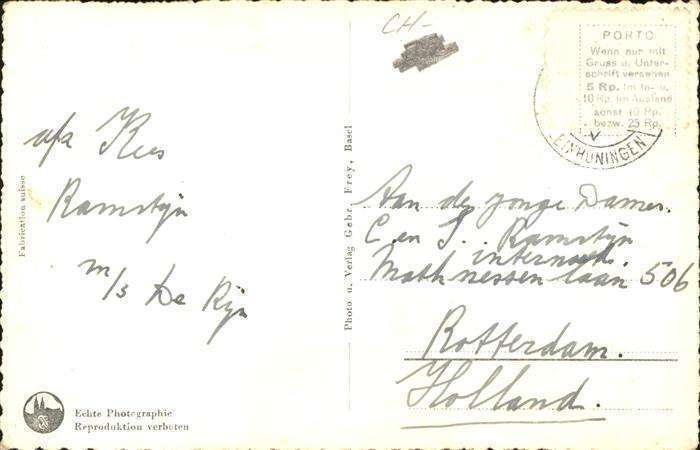 CH-
PORTO
Wenn nur mit
Gruss u. Unter-
schrift versehen
5 Rp. im In- u.
10 Rp. im Ausland
sonst 10 Rp.
bezw. 25 Rp.
EINHÜNINGEN
afz Kees
Ramstijn
m/s De Rijn
Fabrication suisse
Echte Photographie
Reproduktion verboten
Photo u. Verlag Gebr. Frey, Basel
Aan de jonge Dames.
C en J. Ramstijn
internaat.
Mathnessenlaan 506
Rotterdam.
Holland.